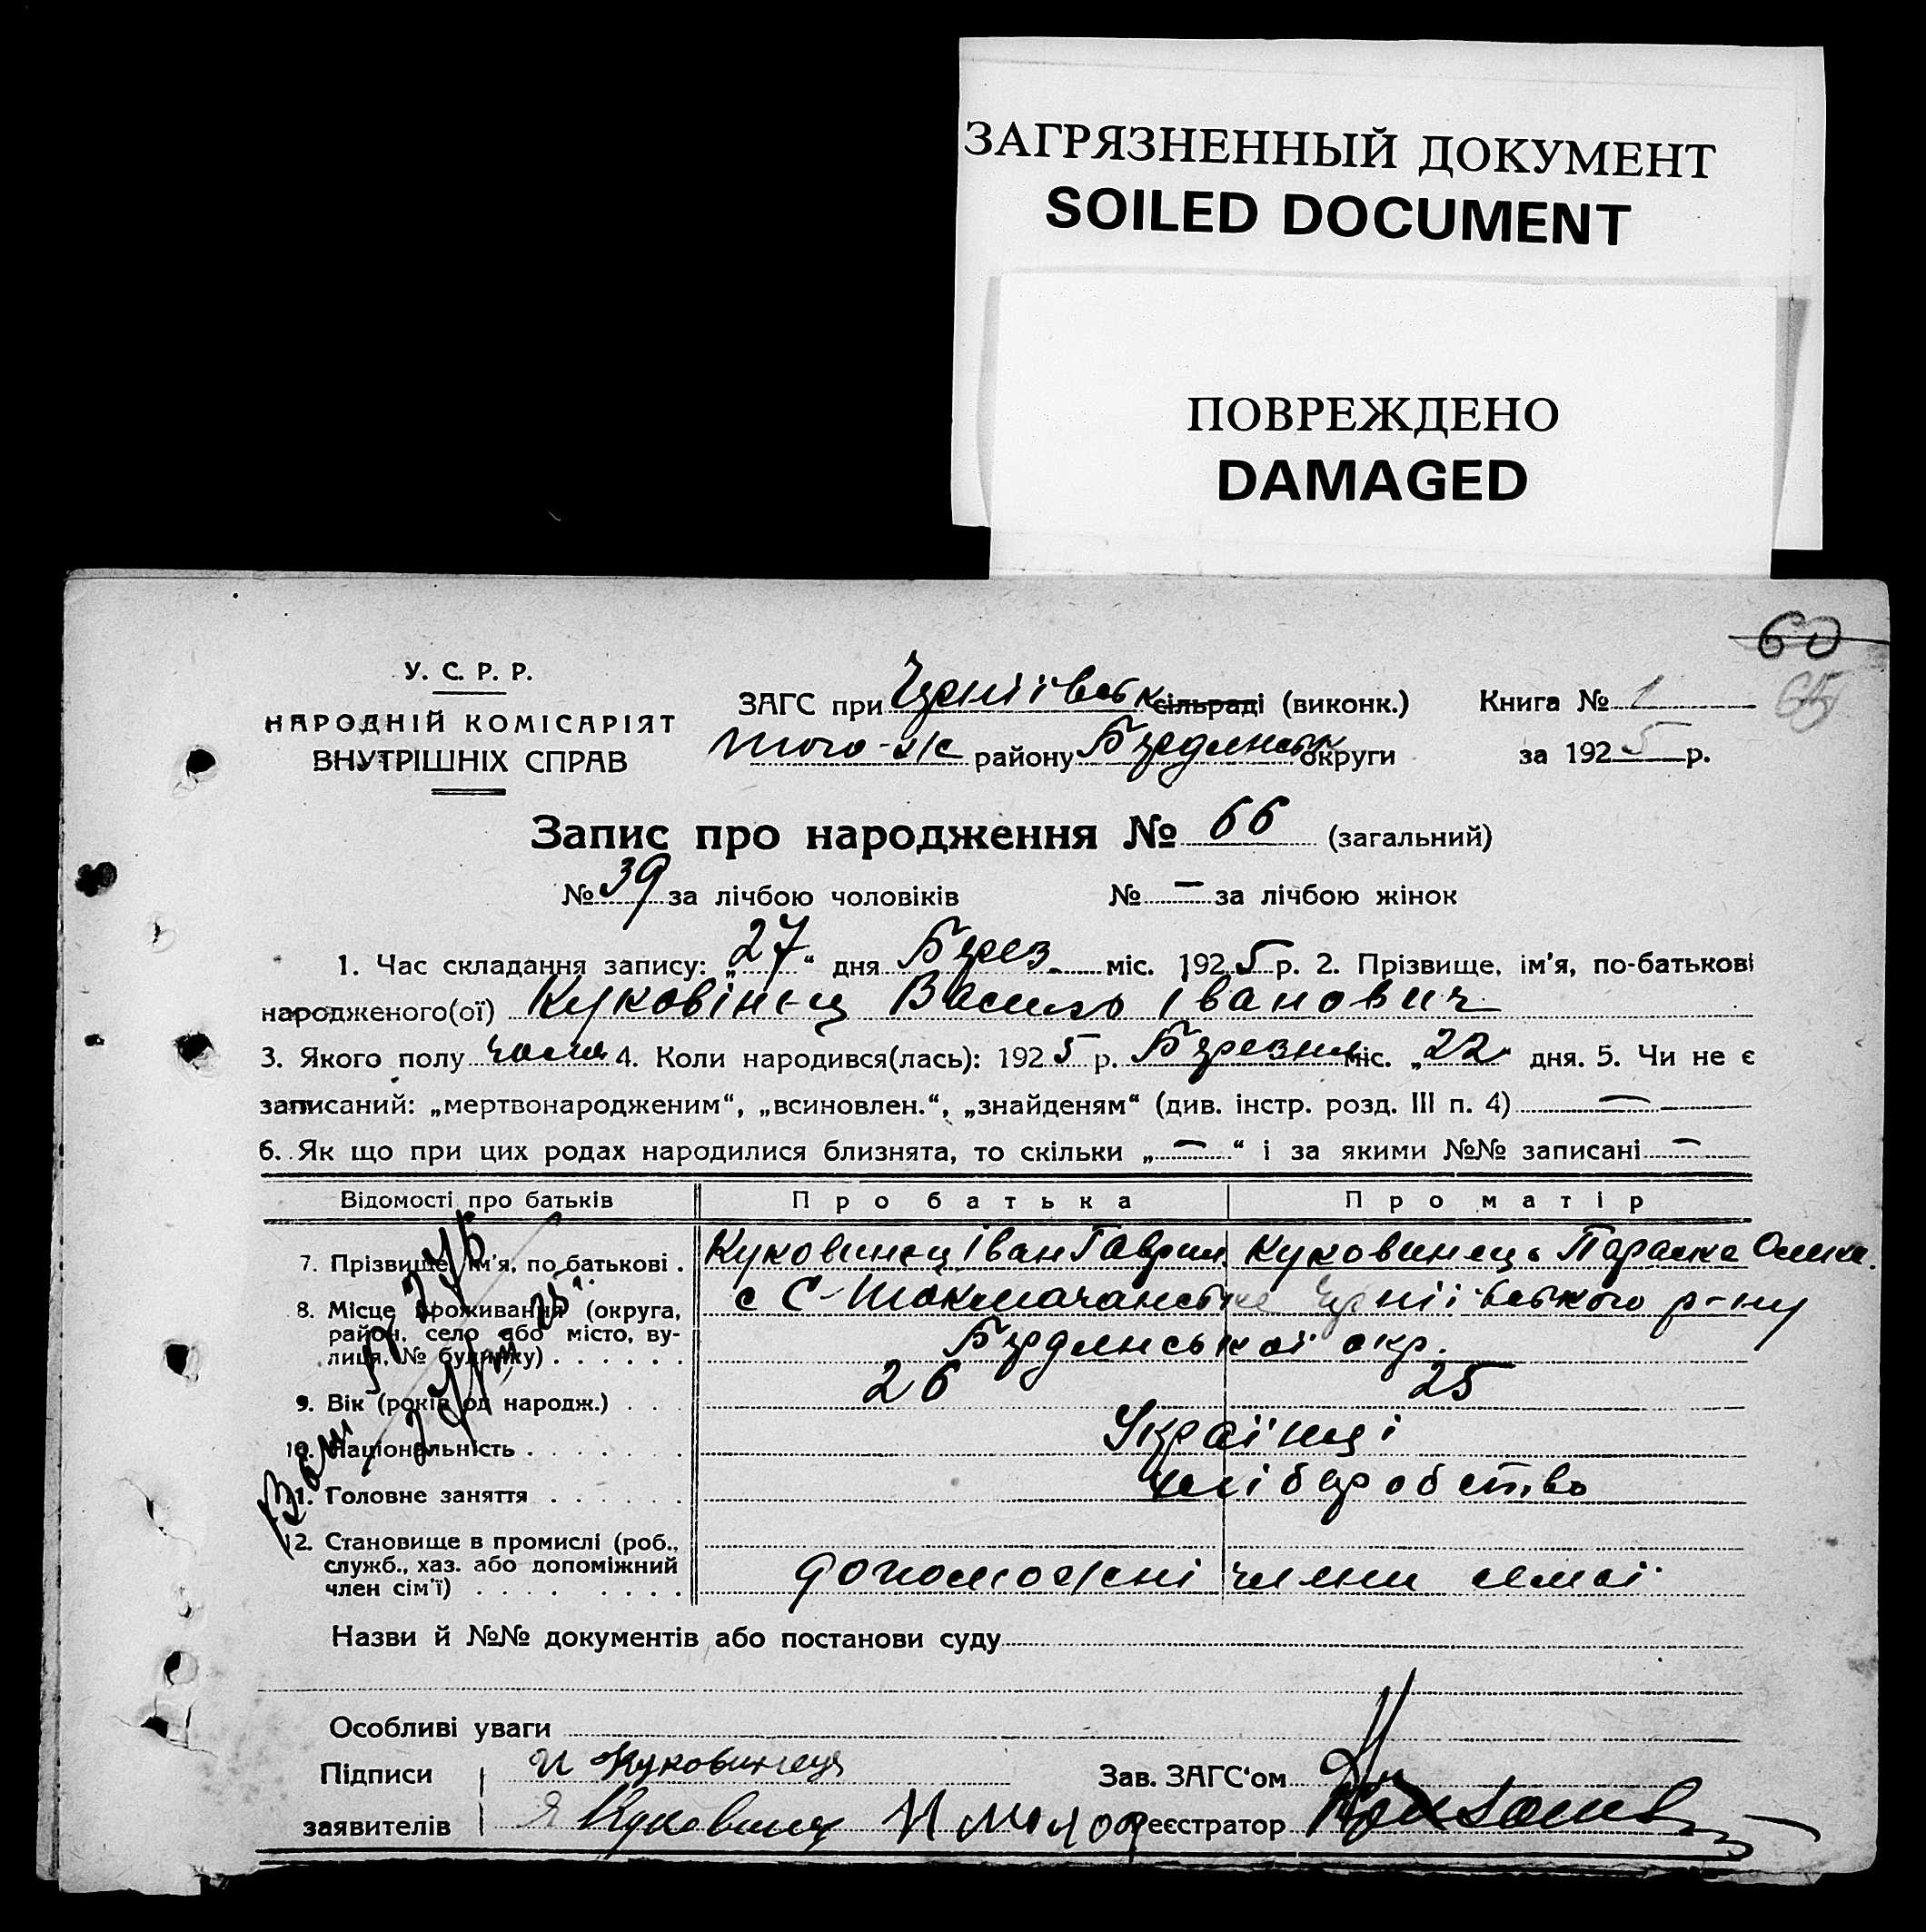 ЗАГРЯЗНЕННЫЙ ДОКУМЕНТ
SOILED DOCUMENT
ПОВРЕЖДЕНО
DAMAGED
60
65
У. С. Р. Р.
НАРОДНІЙ КОМІСАРІЯТ
ВНУТРІШНІХ СПРАВ
ЗАГС при Черніївськ сільраді (виконк.) Книга № 1
того-ж району Бердянськ округи за 1925 р.
Запис про народження № 66 (загальний)
№ 39 за лічбою чоловіків № — за лічбою жінок
1. Час складання запису: „27“ дня Берез. міс. 1925 р. 2. Прізвище, ім'я, по-батькові
народженого(ої) Куковінець Василь Іванович
3. Якого полу чолов 4. Коли народився(лась): 1925 р. Березня міс. „22“ дня. 5. Чи не є
записаний: „мертвонародженим“, „всиновлен.“, „знайденям“ (див. інстр. розд. III п. 4) —
6. Як що при цих родах народилися близнята, то скільки „—“ і за якими №№ записані —
Відомості про батьків Про батька Про матір
7. Прізвище, ім'я, по батькові . Куковинец Іван Гаврил. Куковинець Параска Олик.
8. Місце проживання (округа, район, село або місто, вулиця, № будинку) . . . . . . с С-Токмачанське Черніівського р-ну
Бердянськоі окр.
9. Вік (років од народж.) . . . 26 25
10. Національність . . . . . . Українці
11. Головне заняття . . . . . . хліборобство
12. Становище в промислі (роб.,
служб., хаз. або допоміжний
член сім'ї) . . . . . . . . допоможні члени семьі
Назви й №№ документів або постанови суду
Особливі уваги
Підписи И Куковинец Зав. ЗАГС'ом
заявителів Я Куковинец Реєстратор